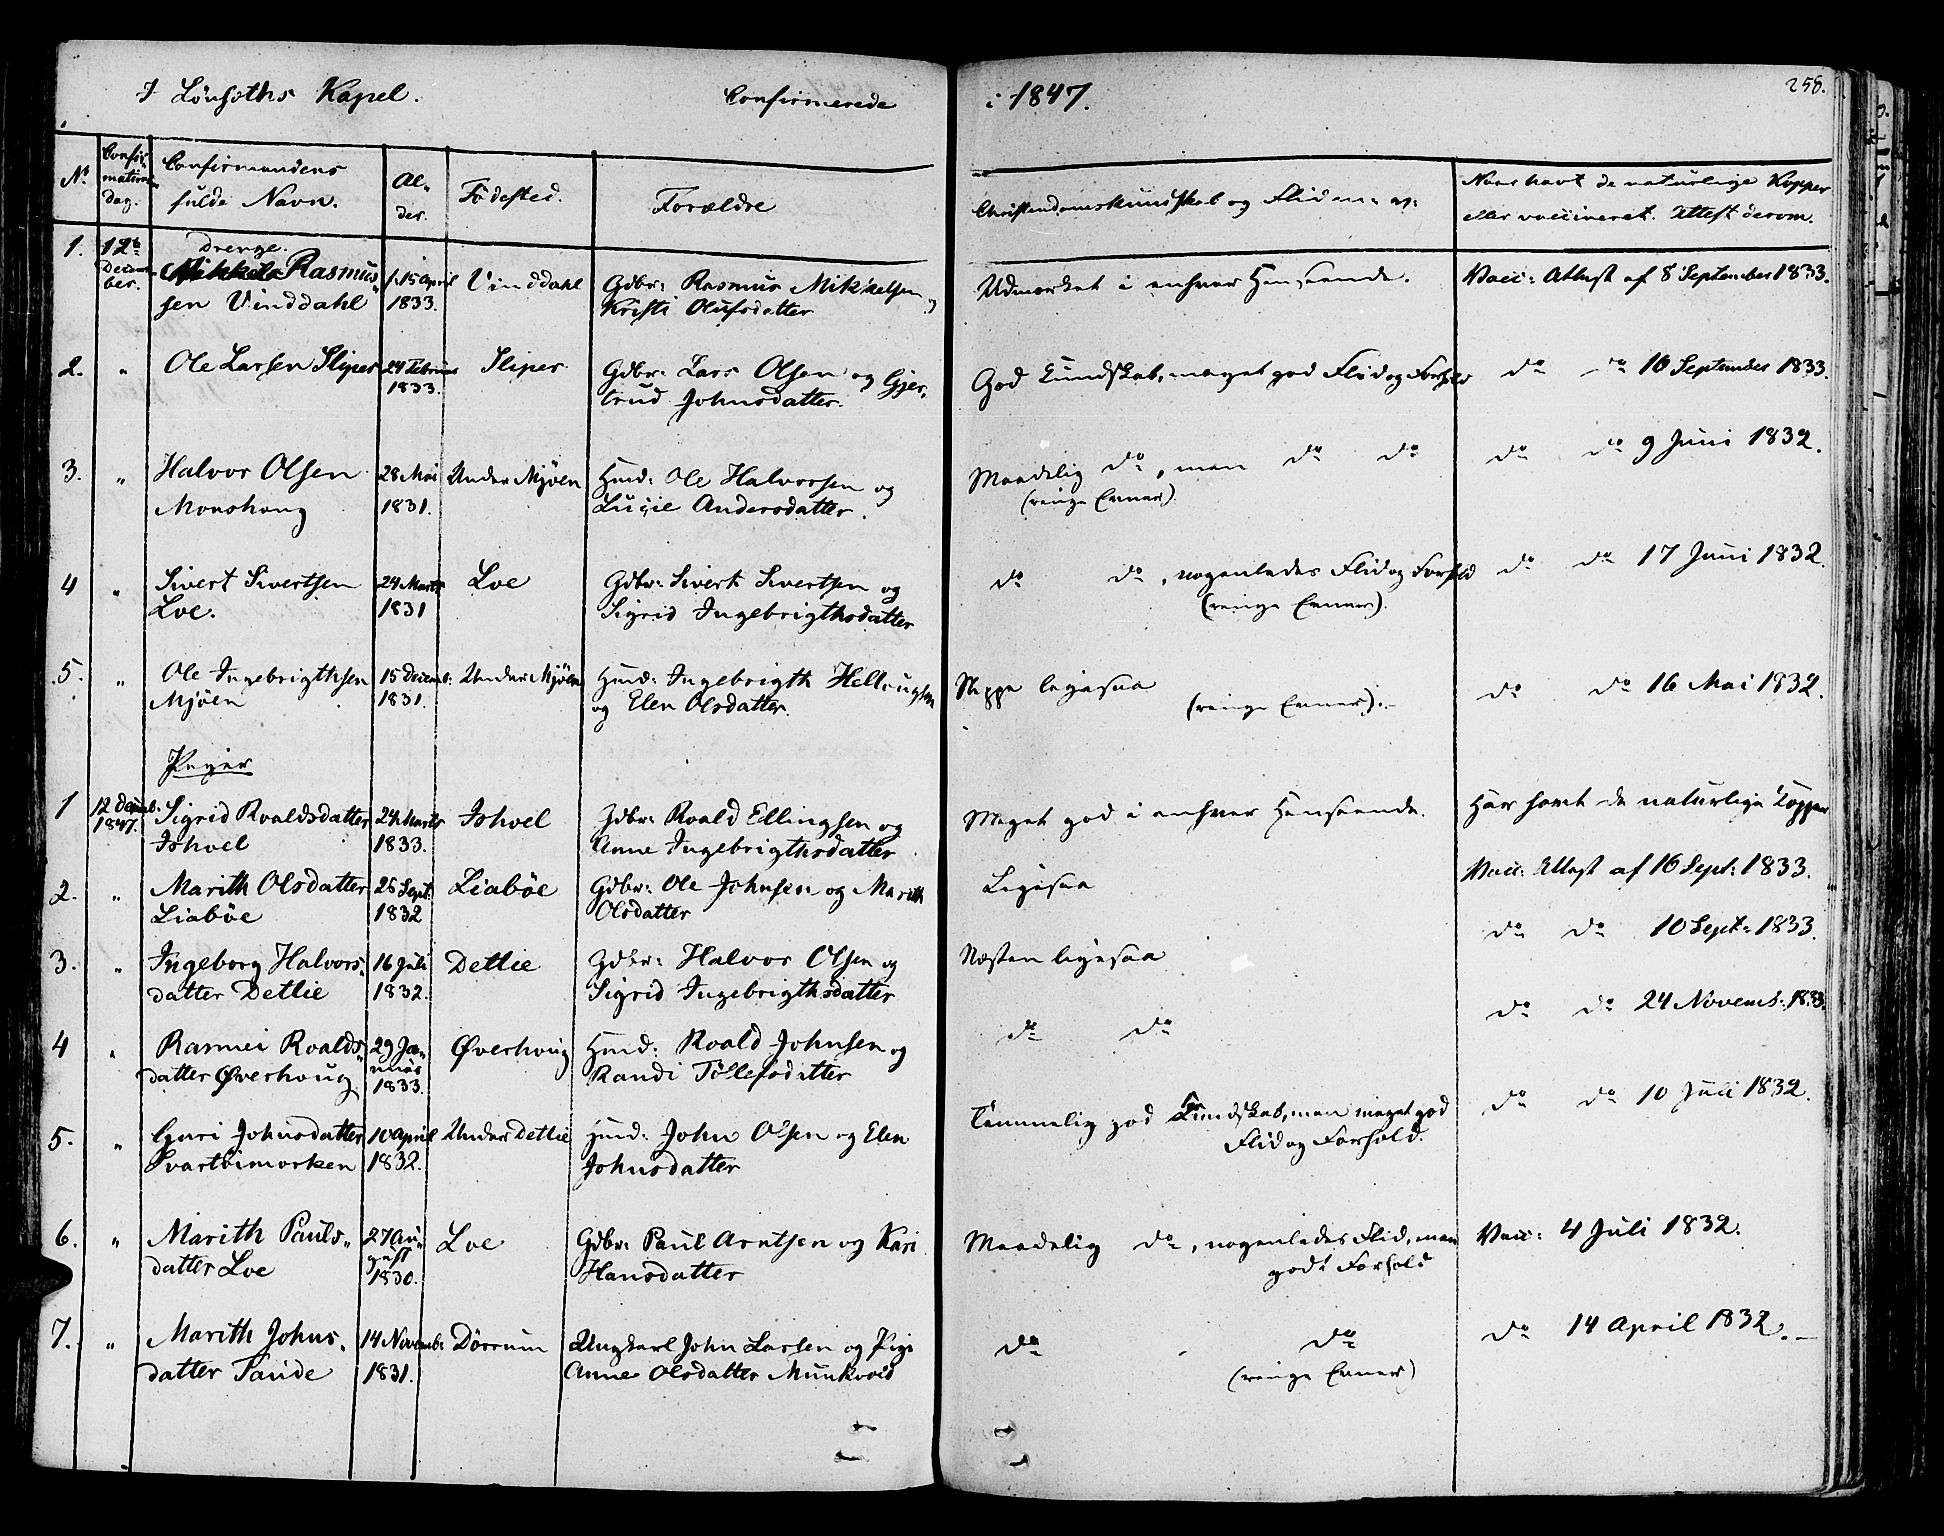 I Lønseths Kapel. Confirmerede i 1847. 258.
No Confirmations Dag. Confirmandens fulde Navn. Alder. Fødested. Forældre Christendomskundskab og Flid m: v: Naar havt de naturlige Kopper eller vaccineret. Attest derom.
Drenge.
1. 12te December. Mikkel Rasmussen Vinddahl f. 15 April 1833. Vinddahl Gdbr: Rasmus Mikkelsen og Kristi Olufsdatter Udmærket i enhver Henseende. Vacc: Attest af 8 September 1833.
2. " Ole Larsen Sliper 24 Februar 1833. Sliper Gdbr: Lars Olsen og Gjertrud Johnsdatter. God Kundskab, meget god Flid og Forhold do do 16 September 1833.
3. " Halvor Olsen Monshoug 28 Mai 1831. Under Mjøen Huusmd: Ole Halvorsen og Lucie Andersdatter. Maadelig do, men do do (ringe Evner). do do 9 Juni 1832.
4 " Sivert Sivertsen Loe. 24 Marts 1831 Loe Gdbr: Sivert Sivertsen og Sigrid Ingebrigthsdatter do do, nogenledes Flid og Forhold (ringe Evner). do do 17 Juni 1832.
5. " Ole Ingebrigthsen Mjøen 15 Decemb: 1831. Under Mjøen Huusmd: Ingebrigth Hellougsen og Elen Olsdatter. Neppe ligesaa (ringe Evner). do do 16 Mai 1832.
Piger
1 12 Decemb. 1847. Sigrid Roaldsdatter Ishoel 24 Marts 1833. Ishoel Gdbr: Roald Ellingsen og Anne Ingebrigthsdatter Meget god i enhver Henseende. Har havt de naturlige Kopper
2. " Marith Olsdatter Liabøe 26 Sept: 1832 Liabøe Gdbr: Ole Johnsen og Marith Olsdatter Ligesaa Vacc: Attest af 16 Sept: 1833.
3. " Ingeborg Halvorsdatter Detlie 16 Juli 1832. Detlie Gdbr: Halvor Olsen og Sigrid Ingebrigthsdatter Næsten ligesaa do do 10 Sept: 1833.
4 " Rasmei Roaldsdatter Øverhoug 29 Januar 1833. Øverhoug Hmd: Roald Johnsen og Randi Tollefsdatter do do do do 24 Novemb: 1833.
5. " Guri Johnsdatter Svartbimorken 10 April 1832. Under Detlie Hmd: John Olsen og Elen Johnsdatter Temmelig god Kundskab, men meget god Flid og Forhold. do do 10 Juli 1832.
6. " Marith Paulsdatter Loe 27 August 1830. Loe Gdbr: Paul Arntsen og Kari Hansdatter Maadelig do, nogenledes Flid, men godt Forhold Vacc: 4 Juli 1832.
7. " Marith Johnsdatter Sande 14 Novemb: 1831. Dørrum Ungkarl John Larsen og Pige Anne Olsdatter Munkvold do do (ringe Evner) do 14 April 1832.